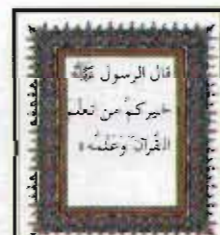 قال الرسول ﷺ
«خيركم من تعلم
القرآن وعلمه»